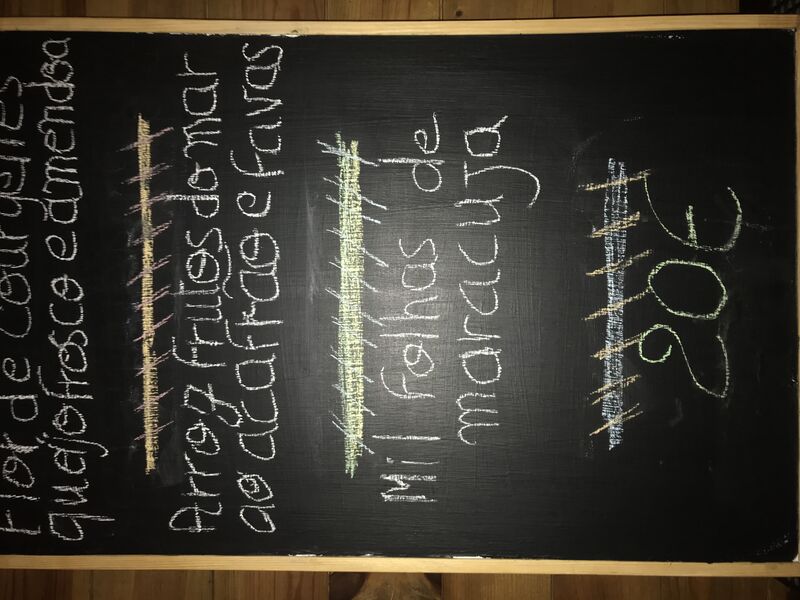 Flor de courgetes
queijo frosco e amendoa
Arroz frutos do mar
ao acafrao e favas
Mil folhas de
maracuja
20€